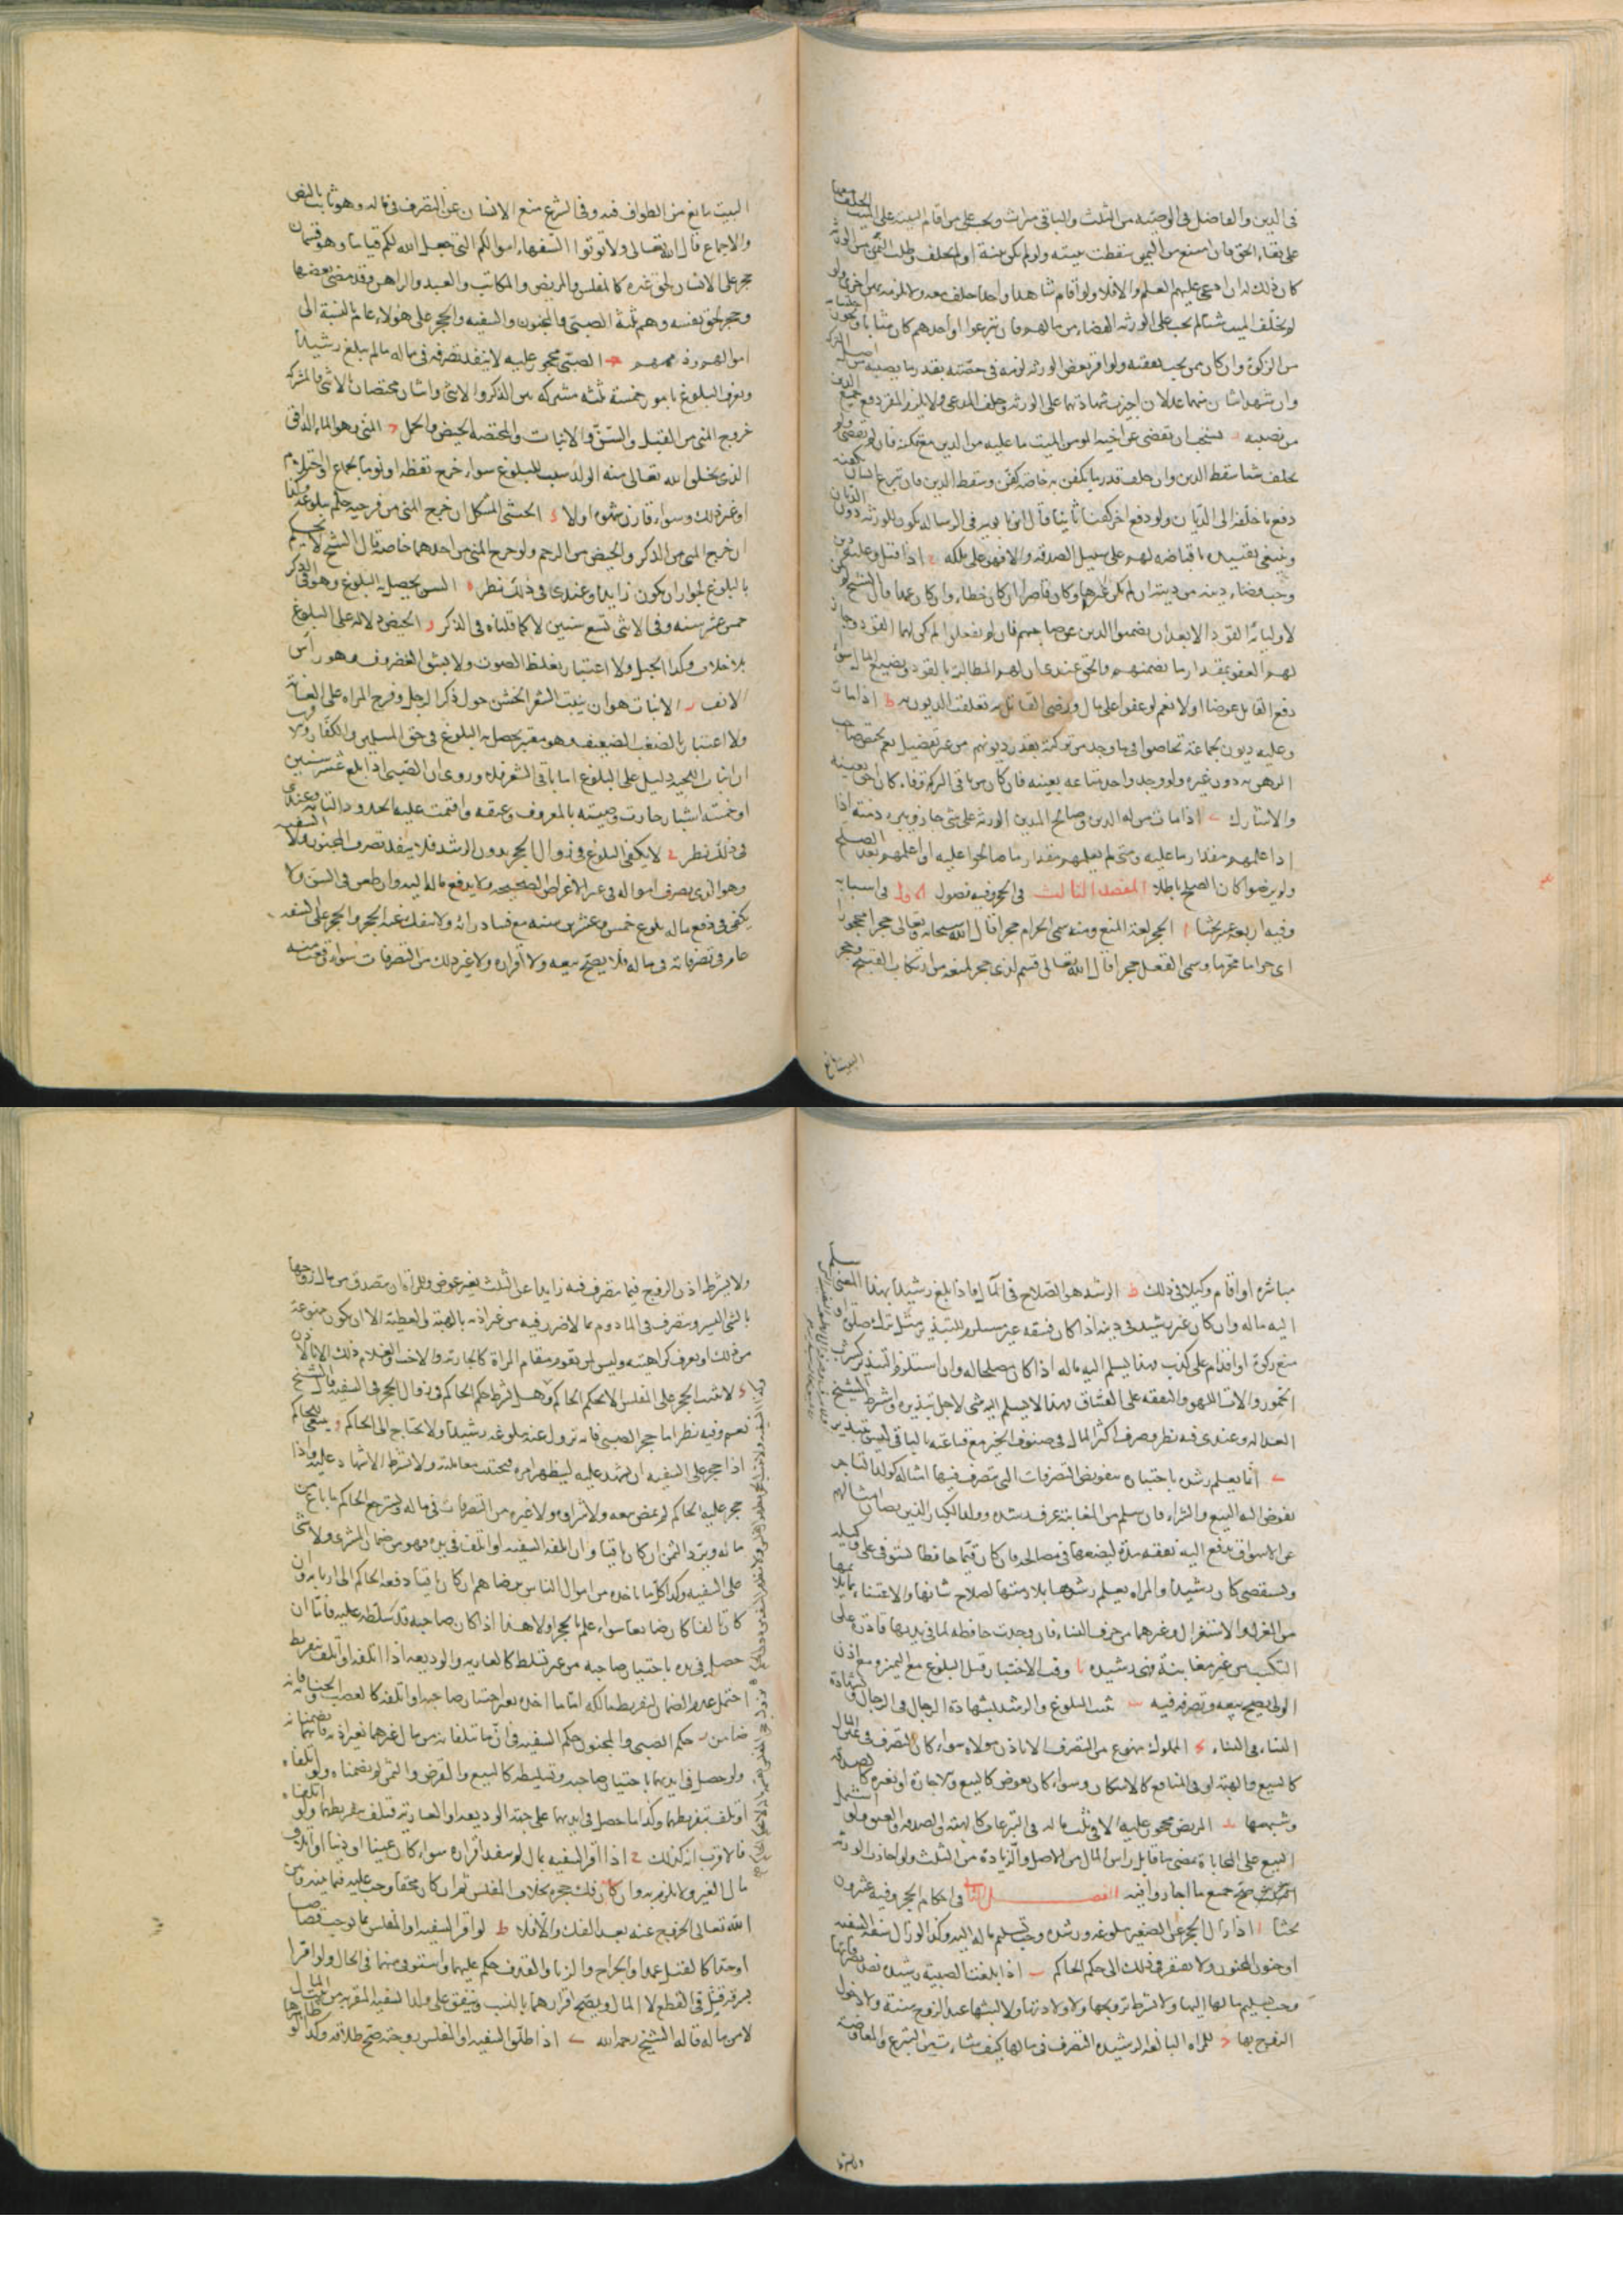 في الدين والفاضل في الوصية من الثلث والباقي ميراث ويجب على من اقام البينة على الميت الحلف معها
على بقاء الحق فان امتنع من اليمين سقطت بينته ولو لم يكن بينة اولم يحلف وطلب اليمين من الورثة
كان ذلك له ان ادعى عليهم العلم والا فلا ولو اقام شاهدا واحدا حلف معه ولا يلزمه يمين اخرى ولو
لم يخلف الميت شيئا لم يجب على الورثة القضاء من مالهم فان تبرعوا او احدهم كان مثابا
من الزكوة وان كان ممن يجب نفقته ولو اقر بعض الورثة لزمه في حصته بقدر ما يصيبه من اصل التركة
وان شهد اثنان منهما عدلان اجيزت شهادتهما على الورثة وحلف المدعى ولا يلزم المقر دفع جميع الدين
من نصيبه يستحب ان يقضى عن اخيه المومن الميت ما عليه من الدين مع تمكنه فان لم
يخلف شيئا سقط الدين وان خلف قدر ما يكفن به خاصة كفن وسقط الدين فان تبرع انسان بكفنه
دفع ما خلفه الى الديان ولو دفع اخر كفنا ثانيا قال ابنا بابويه في الرسالة يكون للورثة دون الديان
وينبغي تقييده باقباضه لهم على سبيل الصدقة والا فهو على ملكه ح اذا قتل وعليه دين
وجب قضاء دينه من ديته ان لم يكن غيرها وكان قاصرا ان كان خطاء وان كان عمدا قال الشيخ لم يكن
لاوليائه القود الا بعد ان يضمنوا الدين عن صاحبهم فان لم يفعلوا لم يكن لهم القود وجاز
لهم العفو بمقدار ما يضمنهم والحق عندي ان لهم المطالبة بالقود ويضيع المال سواء
دفع القاتل عوضا اولا نعم لو عفوا على مال ورضى القاتل به تعلقت الديون به ط اذا مات
وعليه ديون لجماعة تحاصوا فيما وجد من تركته بقدر ديونهم من غير تفضيل نعم يختص صاحب
الرهن به دون غيره ولو وجد واحد متاعه بعينه فان كان من باقي التركة وفاء كان احق بعينه
والا شارك ى اذا مات من له الدين وصالح المدين الورثة على شيء جاز ويبرء ذمته اذا
اذا علمهم مقدار ما عليه ومتى لم يعلمهم مقدار ما صالحوا عليه او اعلمهم بعد الصلح
ولم يرضوا كان الصلح باطلا المقصد الثالث في الحجر وفيه فصول الاول في اسبابه
وفيه اربعة عشر بحثا ا الحجر لغة المنع ومنه سمى الحرام حجرا قال الله سبحانه وتعالى حجرا محجورا
اى حراما محرما وسمى العقل حجرا قال الله تعالى قسم لذي حجر لمنعه من ارتكاب القبيح وحجر
البيت مانع
البيت مانع من الطواف فيه وفي الشرع منع الانسان عن التصرف في ماله وهو ثابت بالنص
والاجماع قال الله تعالى ولا توتوا السفهاء اموالكم التي جعل الله لكم قياما وهو قسمان
حجر على الانسان لحق غيره كالمفلس والمريض والمكاتب والعبد والراهن وقد مضى بعضها
وحجر لحق نفسه وهم ثلثة الصبى والمجنون والسفيه والحجر على هولاء عام بالنسبة الى
اموالهم وذممهم ب الصبى محجور عليه لا ينفذ تصرفه في ماله ما لم يبلغ رشيدا
ويعرف البلوغ بامور خمسة ثلثة مشتركة بين الذكر والانثى واثنان مختصان بالانثى فالمشتركة
خروج المني من القبل والسن والانبات والمختصة الحيض والحمل ج المني وهو الماء الدافق
الذي يخلق الله تعالى منه الولد سبب للبلوغ سواء خرج يقظة او نوما بجماع او احتلام
او غير ذلك وسواء قارن شهوة اولا د الخنثى المشكل ان خرج المني من فرجيه حكم ببلوغه وكذا
ان خرج المني من الذكر والحيض من الرحم ولو خرج المني من احدهما خاصة قال الشيخ لا يحكم
بالبلوغ لجواز ان يكون زايدا وعندي في ذلك نظر ه السن يحصل به البلوغ وهو في الذكر
خمس عشر سنة وفي الانثى تسع سنين لا كما قلناه في الذكر و الحيض دلالة على البلوغ
بلا خلاف وكذا الحبل ولا اعتبار بغلظ الصوت ولا بشق الغضروف وهو راس
الانف ز الانبات هو ان ينبت الشعر الخشن حول ذكر الرجل وفرج المراة على العانة
ولا اعتبار بالضعيف وهو معتبر يحصل به البلوغ في حق المسلمين والكفار
ان انبات اللحية دليل على البلوغ اما باقي الشعر فلا وروى ان الصبى اذا بلغ عشر سنين
او خمسة اشبار جازت وصيته بالمعروف وعتقه واقيمت عليه الحدود التامة وعندي
في ذلك نظر ح لا يكفى البلوغ في زوال الحجر بدون الرشد فلا ينفذ تصرف المجنون ولا السفيه
وهو الذي يصرف امواله في غير الاغراض الصحيحة ولا يدفع ماله اليه وان طعن في السن ولا
يكفى في دفع ماله بلوغ خمس وعشرين سنة مع فساد رائه ولا ينفك عنه الحجر والحجر على السفيه
عام في تصرفاته في ماله فلا يصح بيعه ولا اقراره ولا غير ذلك من التصرفات سواء
مباشرة او اقام وكيلا في ذلك ط الرشد هو الصلاح في المال فاذا بلغ رشيدا بهذا المعنى سلم
اليه ماله وان كان غير رشيد في دينه اذا كان فسقه غير مستلزم للتبذير مثل ترك صلوة او
منع زكوة او اقدام على كذب فهذا يسلم اليه ماله اذا كان مصلحا له وان استلزم التبذير كشرب
الخمور والات اللهو والنفقة على الفساق فهذا لا يسلم اليه شى لاجل تبذيره واشترط الشيخ
العدالة وعندي فيه نظر وصرف اكثر المال في صنوف الخير مع قناعته بالباقي ليس بتبذير
ى انما يعلم رشده باختباره بتفويض التصرفات التي يتصرف فيها امثاله كولد التاجر
يفوض اليه البيع والشراء فان سلم من المغابنة عرف رشده وولد الكبار الذين يصان امثالهم
عن الاسواق يدفع اليه نفقته مدة ليضعها في مصالحه فان كان قيما حافظا يستوفى على وكيله
ويستقصى كان رشيدا والمراة يعلم رشدها بملازمتها لصلاح شانها والاعتناء بما يلائمها
من الغزل والاستغزال وغيرهما من حرف النساء فان وجدت حافظة لما في يديها قادرة على
التكسب من غير مغابنة فهى رشيدة يا وقت الاختبار قبل البلوغ مع التمييز ومع اذن
الولى يصح بيعه وتصرفه فيه يب يثبت البلوغ والرشد بشهادة الرجال في الرجال وبشهادة
النساء في النساء يج المملوك ممنوع من التصرف الا باذن مولاه سواء كان التصرف في عين المال
كالبيع والهبة او في المنافع كالاسكان وسواء كان بعوض كالبيع والاجارة او بغيره كالصدقة
وشبهها يد المريض محجور عليه الا في ثلث ماله في التبرعات كالهبة والصدقة والعتق ولو اشتمل
البيع على المحاباة مضى ما قابل راس المال من الاصل والزيادة من الثلث ولو اجاز الورثة
صح جميع ما اجازوا فيه الفصل الثاني في احكام الحجر وفيه عشرون
بحثا ا اذا زال الحجر عن الصغير ببلوغه ورشده وجب تسليم ماله اليه وكذا لو زال سفه السفيه
او جنون المجنون ولا يفتقر في ذلك الى حكم الحاكم ب اذا بلغت الصبية رشيدة نفذ تصرفاتها
وجب تسليم مالها اليها ولا يشترط تزويجها ولا ولادتها ولا لبثها عند الزوج سنة ولا دخول
الزوج بها ج للمراة البالغة الرشيدة التصرف في مالها كيف شاءت من التبرع والمعاوضة
ولا يشترط
ولا يشترط اذن الزوج فيما يتصرف فيه زايدا عن الثلث بغير عوض وللمراة ان تتصدق من مال زوجها
بالشى اليسير وتتصرف في المادوم بما لا ضرر فيه من غير اذنه بالهبة والعطية الا ان يكون ممنوعة
من ذلك او يعرف كراهيته وليس لمن يقوم مقام المراة كالجارية والاخت والغلام ذلك الا بالاذن
د لا يثبت الحجر على المفلس الا بحكم الحاكم وهل يشترط حكم الحاكم في زوال الحجر في السفيه قال الشيخ
نعم وفيه نظر اما حجر الصبى فانه يزول عنه ببلوغه رشيدا ولا يحتاج الى الحاكم ه ينبغي للحاكم
اذا حجر على السفيه ان يشهد عليه ليظهر امره فيجتنب معاملته ولا يشترط الاشهاد عليه واذا
حجر عليه الحاكم لم يمض بيعه ولا شراؤه ولا غيره من التصرفات في ماله ويسترجع الحاكم ما باع من
ماله ويرد الثمن ان كان باقيا وان اتلفه السفيه او اتلف في يده فهو من ضمان المشترى ولا شى
على السفيه وكذا كل ما ياخذه من اموال الناس برضاهم ان كان باقيا دفعه الحاكم الى اربابه وان
كان تالفا كان ضايعا سواء علم بالحجر اولا هذا اذا كان صاحبه قد سلطه عليه فاما ان
حصل في يده باختيار صاحبه من غير تسليط كالعارية والوديعة اذا اتلفه او تلف بتفريط
احتمل عدم الضمان لتفريط مالكه اما ما اخذه بغير اختيار صاحبه او اتلفه كالغصب والجناية فانه
ضامن و حكم الصبى والمجنون حكم السفيه في ان ما يتلفانه من مال غيرهما بغير اذنه فانهما يضمنانه
ولو حصل في ايديهما باختيار صاحبه وتسليطه كالبيع والقرض والثمن لم يضمناه ولو اتلفاه
او تلف بتفريطهما وكذا ما حصل في ايديهما على جهة الوديعة او العارية فتلف بتفريطهما ولو اتلفاه
فالاقرب انه كذلك ح اذا اقر السفيه بمال لم ينفذ اقراره سواء كان عينا او دينا او اتلاف
مال الغير ولا يلزمه وان فك حجره بخلاف المفلس ثم ان كان محقا وجب عليه فيما بينه وبين
الله تعالى الخروج عنه بعد الفك والا فلا ط لو اقر السفيه او المفلس بما يوجب قصاصا
او حدا كالقتل عمدا والجراح والزنا والقذف حكم عليهما واستوفى منهما في الحال ولو اقرا
بسرقة قبل في القطع لا المال ويصح اقرارهما بالنسب وينفق على ولد السفيه المقر به من بيت المال
لا من ماله قاله الشيخ رحمه الله ى اذا طلق السفيه او المفلس زوجته صح طلاقه وكذا لو